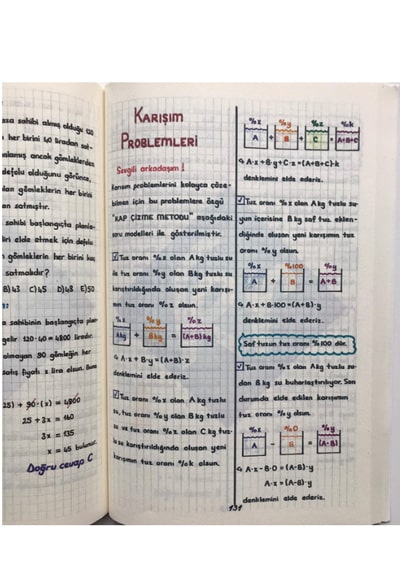 sahibi almış olduğu 120
her birini 40 liradan sat-
ancak gömleklerden
defolu olduğunu görünce,
gömleklerin her birini
satmıştır.
sahibi başlangıçta planla-
elde etmek için defolu
gömleklerin her birini kaç
satmalıdır?
B) 43 C) 45 D) 48 E) 50
sahibinin başlangıçta plan-
gelir 120.40 = 4800 liradır.
olmayan 90 gömleğin her
satış fiyatı x lira olsun. Buna
25) + 90.(x) = 4800
25 + 3x = 160
3x = 135
x = 45 bulunur.
Doğru cevap C
KARIŞIM
PROBLEMLERİ
Sevgili arkadaşım!
Karışım problemlerini kolayca çöze-
bilmen için bu problemlere özgü
"KAP ÇİZME METODU" aşağıdaki
soru modelleri ile gösterilmiştir.
Tuz oranı %x olan A kg tuzlu su
ile tuz oranı %y olan B kg tuzlu su
karıştırıldığında oluşan yeni karışı-
mın tuz oranı %z olsun.
%x %y %z
A kg + B kg = (A+B) kg
A.x + B.y = (A+B).z
denklemini elde ederiz.
Tuz oranı %x olan A kg tuzlu
su, tuz oranı %y olan B kg tuzlu
su ve tuz oranı %z olan C kg tuz-
lu su karıştırıldığında oluşan yeni
karışımın tuz oranı %k olsun.
%x %y %z %k
A + B + C = A+B+C
A.x + B.y + C.z = (A+B+C).k
denklemini elde ederiz.
Tuz oranı %x olan A kg tuzlu su-
yun içerisine B kg saf tuz eklen-
diğinde oluşan yeni karışımın tuz
oranı %y olsun.
%x %100 %y
A + B = A+B
A.x + B.100 = (A+B).y
denklemini elde ederiz.
Saf tuzun tuz oranı %100 dür.
Tuz oranı %x olan A kg tuzlu su-
dan B kg su buharlaştırılıyor. Son
durumda elde edilen karışımın
tuz oranı %y olsun.
%x %0 %y
A - B = (A-B)
A.x - B.0 = (A-B).y
A.x = (A-B).y
denklemini elde ederiz.
131